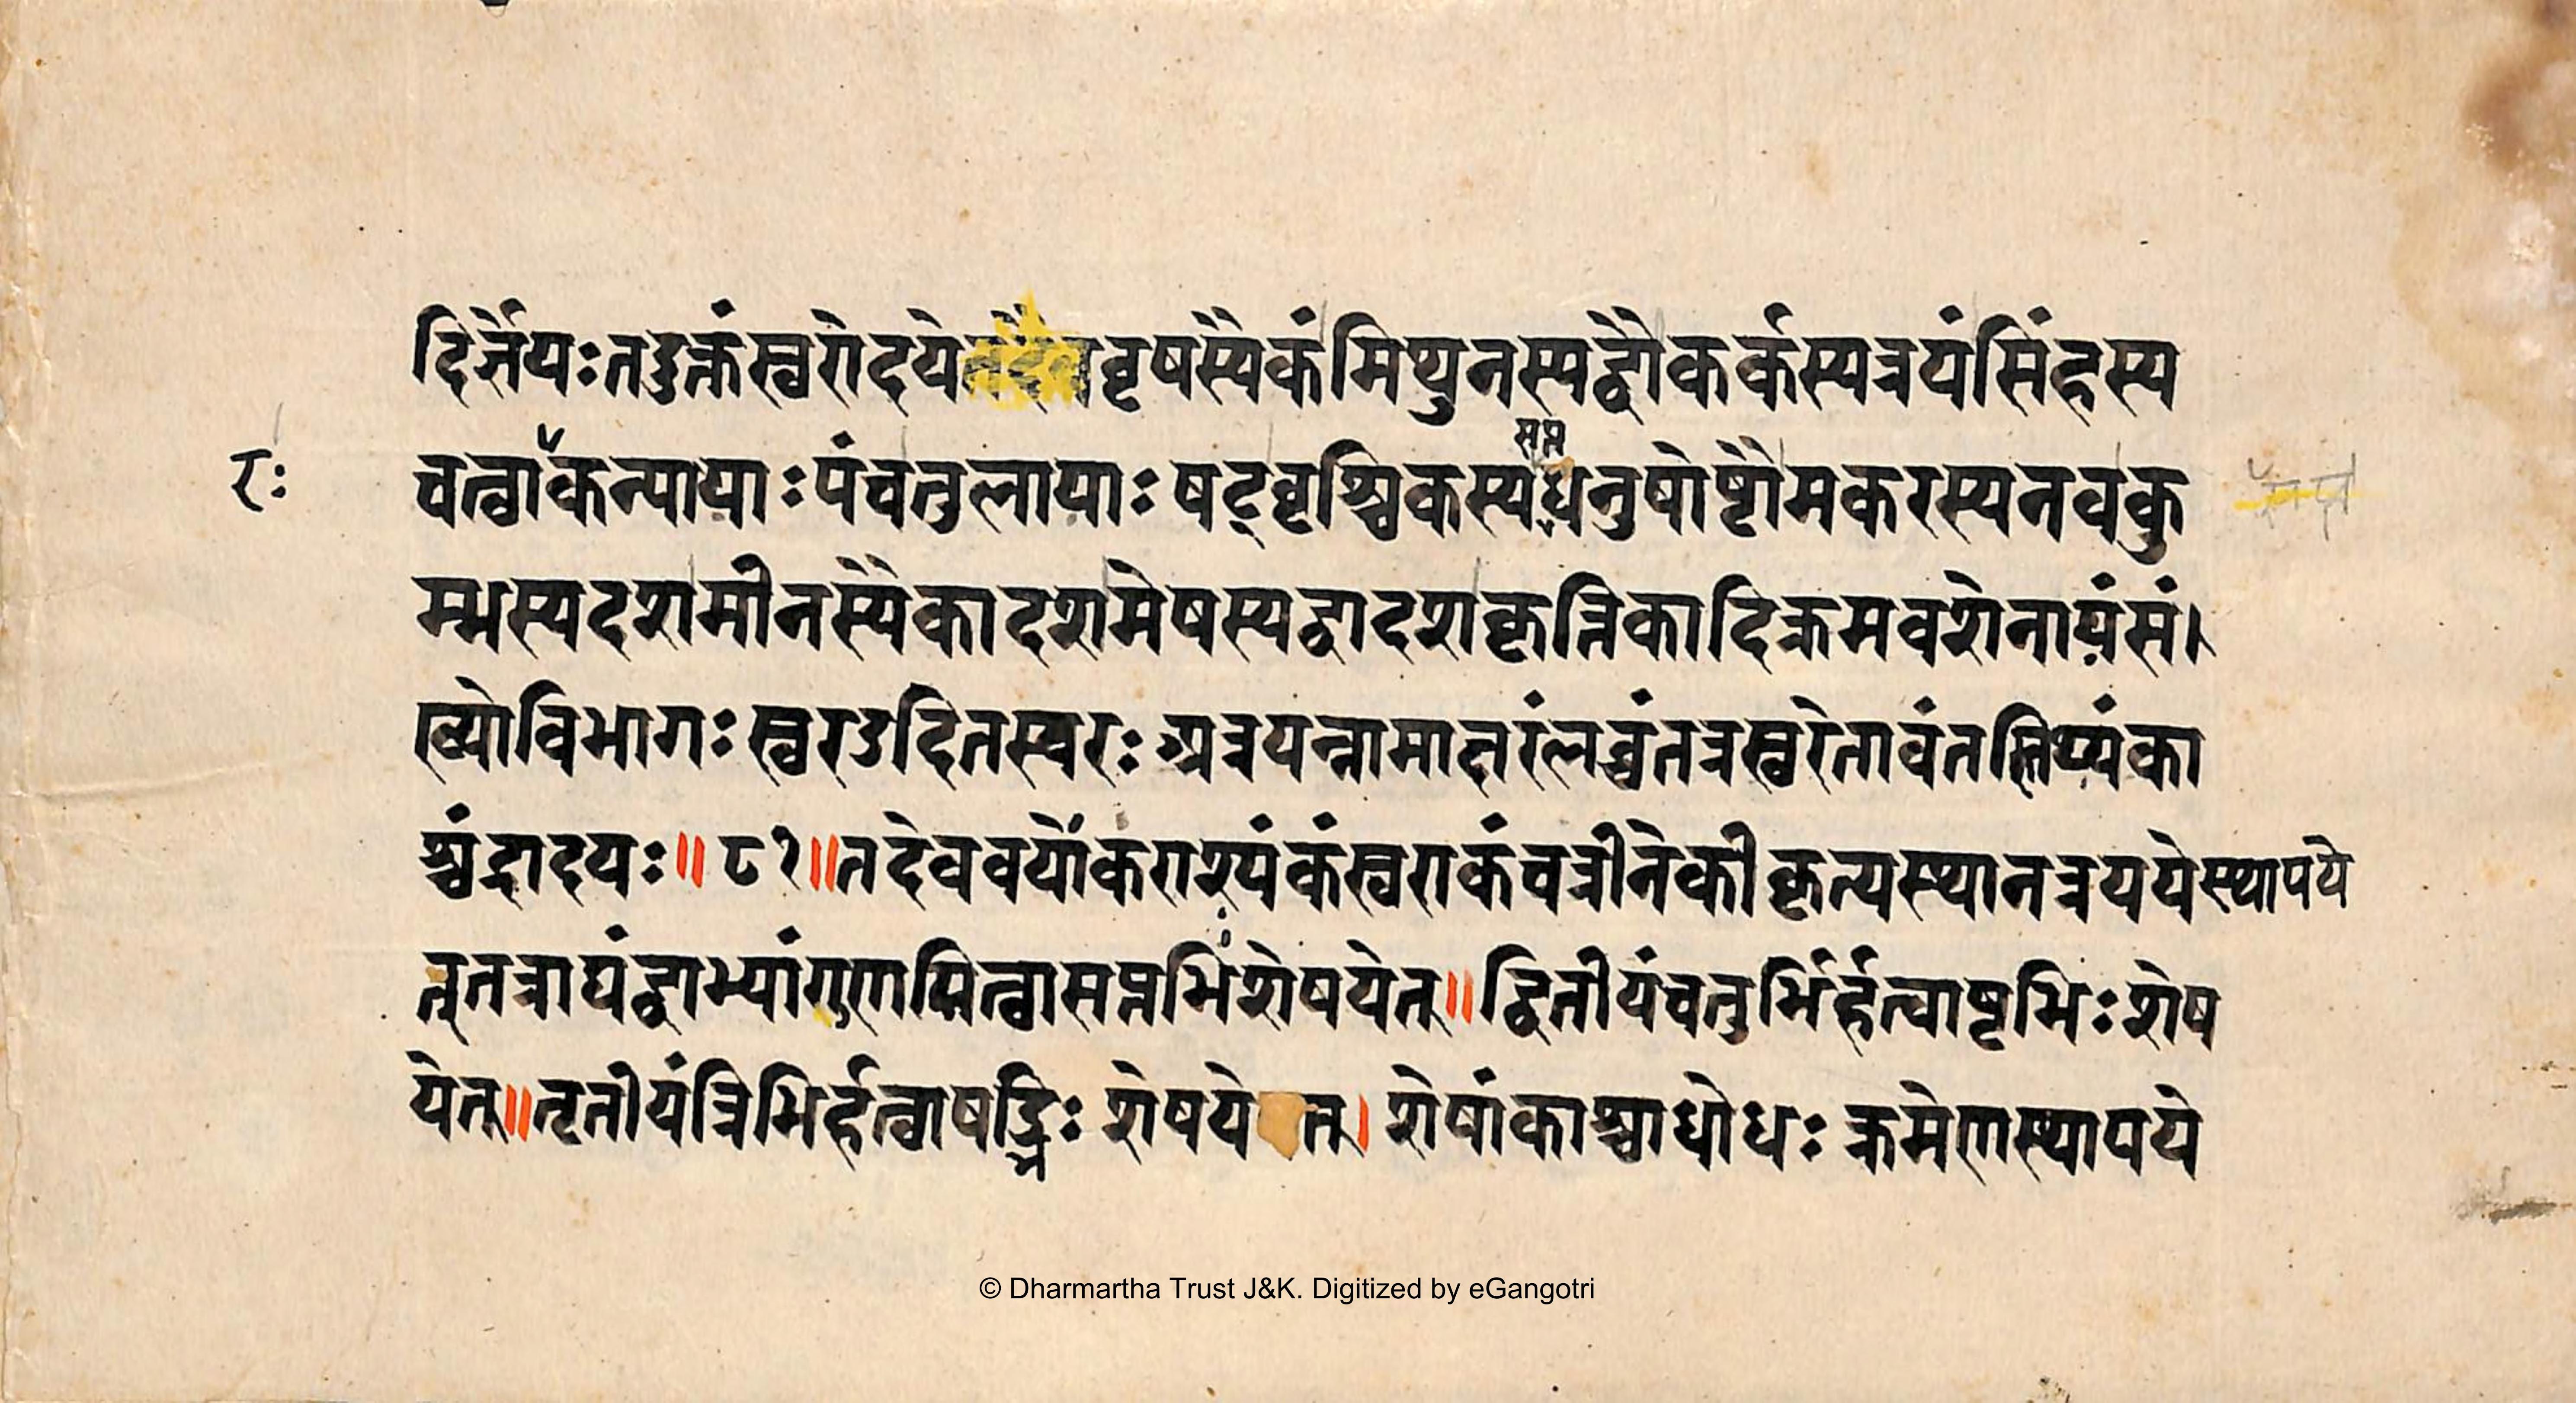 दिर्ज्ञेयः तदुक्तं स्वरोदये वृषस्यैकं मिथुनस्य द्वौ कर्कस्य त्रयं सिंहस्य
रः
चत्वा कन्यायाः पंच तुलायाः षट् वृश्चिकस्य सप्त धनुषोष्टौ मकरस्य नव कु
म्भस्य दश मीनस्यैकादश मेषस्य द्वादश कृत्तिकादिक्रमवशेनायं सं।
ख्यो विभागः स्वरउदितस्वरः अत्र यन्नामांतरं लब्धं तत्र स्वरे तावंतस्तिथ्यंका
श्चंद्रादयः॥ ८१॥ तदेव वर्यांकराश्यंकं स्वरांकं च त्रीनेकीकृत्य स्थानत्रयये स्थापये
त् तत्राद्यं द्वाभ्यां गुणयित्वा सप्तभिः शेषयेत्॥ द्वितीयं चतुर्भिर्हत्वाष्टभिः शेष
येत्॥ तृतीयं त्रिभिर्हत्वा षद्भिः शेषयेत्। शेषांकाश्चाधोधः क्रमेण स्थापये
© Dharmartha Trust J&K. Digitized by eGangotri